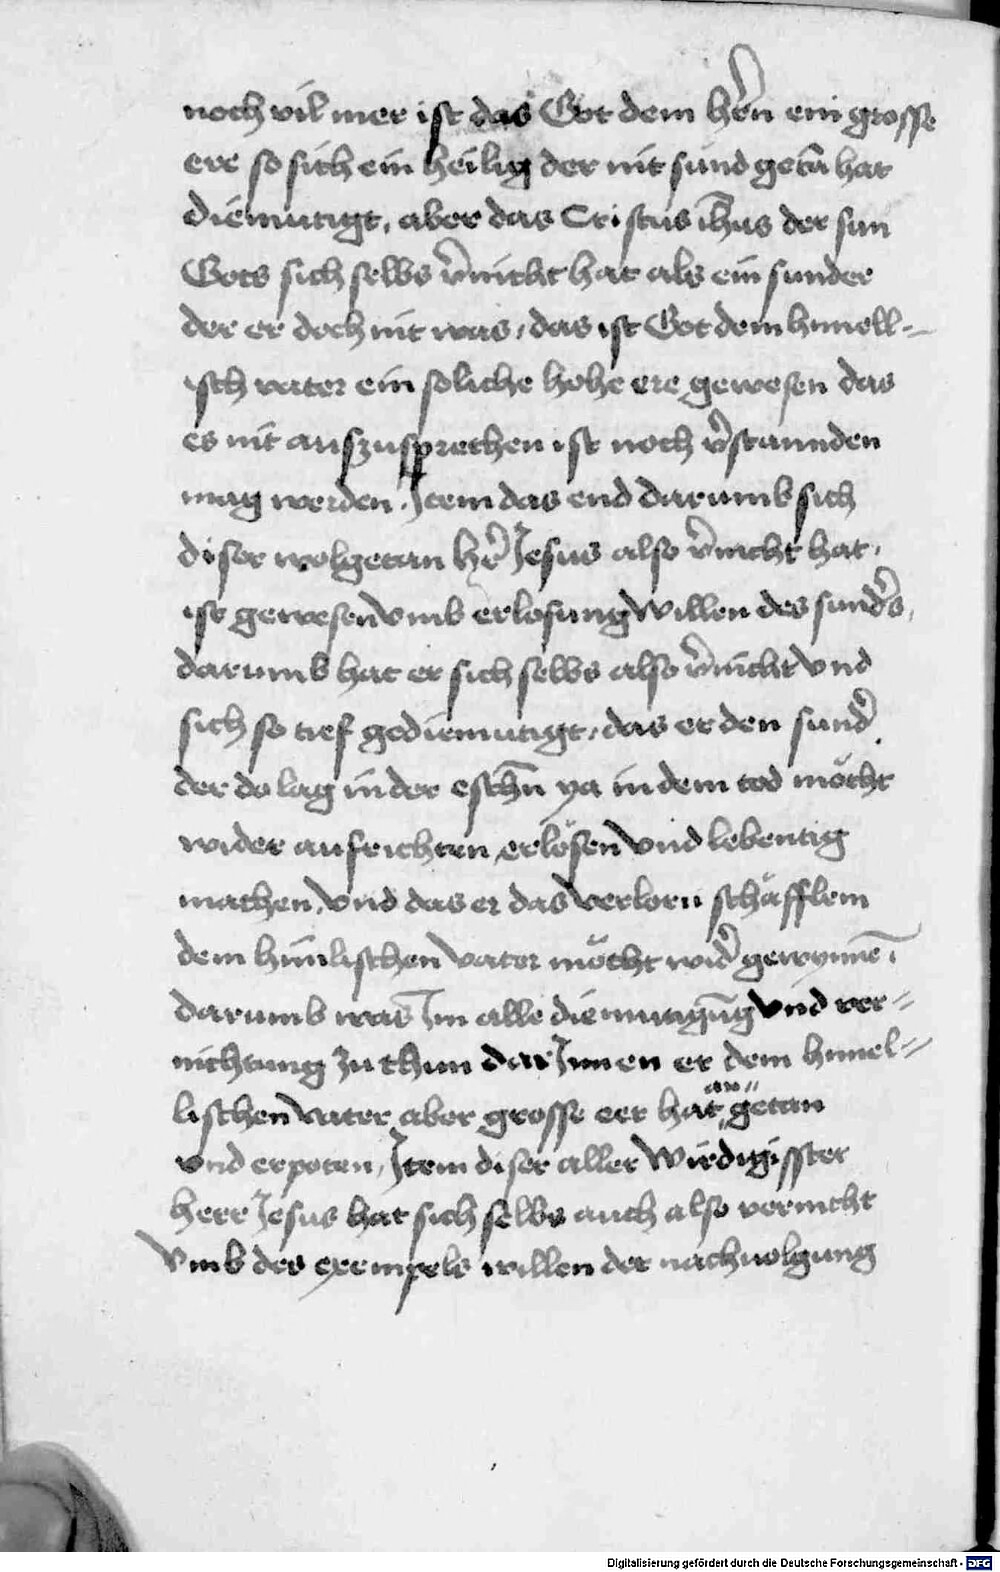 noch vil mer ist das Got dem hr̃n ein grosse
ere so sich ein heilig der nit sünd getā hat
diemutigt, aber das Cristus ih̄us der sun
Gots sich selbs v̾nicht hat als ein sunder
der er doch nit was, das ist Got dem himell-
isch vater ein soliche hohe ere gewesen das
es nit auszusprechen ist noch v̾stannden
mag werden. Item das end darumb sich
diser wolgetan hr̾ Jesus also v̾nicht hat,
ist gewesen vmb erlosung willen des sund̾s,
darumb hat er sich selbs also v̾nicht vnd
sich so tief gediemutigt, das er den sund̾
der do lag in der eschn̄ ya in dem tod möcht
wider aufrichten erlösen vnd lebentig
machen, vnd das er das verlorn schäfflein
dem himlischen vater möcht wid̾ gewynnē
darumb was Im alle diemutigūg vnd ver-
nichtung zu thun dar Innen er dem himel-
lischen vater aber grosse eer hat an getan
vnd erpoten, Item diser aller wirdigisster
herr Jesus hat sich selbs auch also vernicht
vmb des exempels willen der nachuolgung
Digitalisierung gefördert durch die Deutsche Forschungsgemeinschaft - DFG